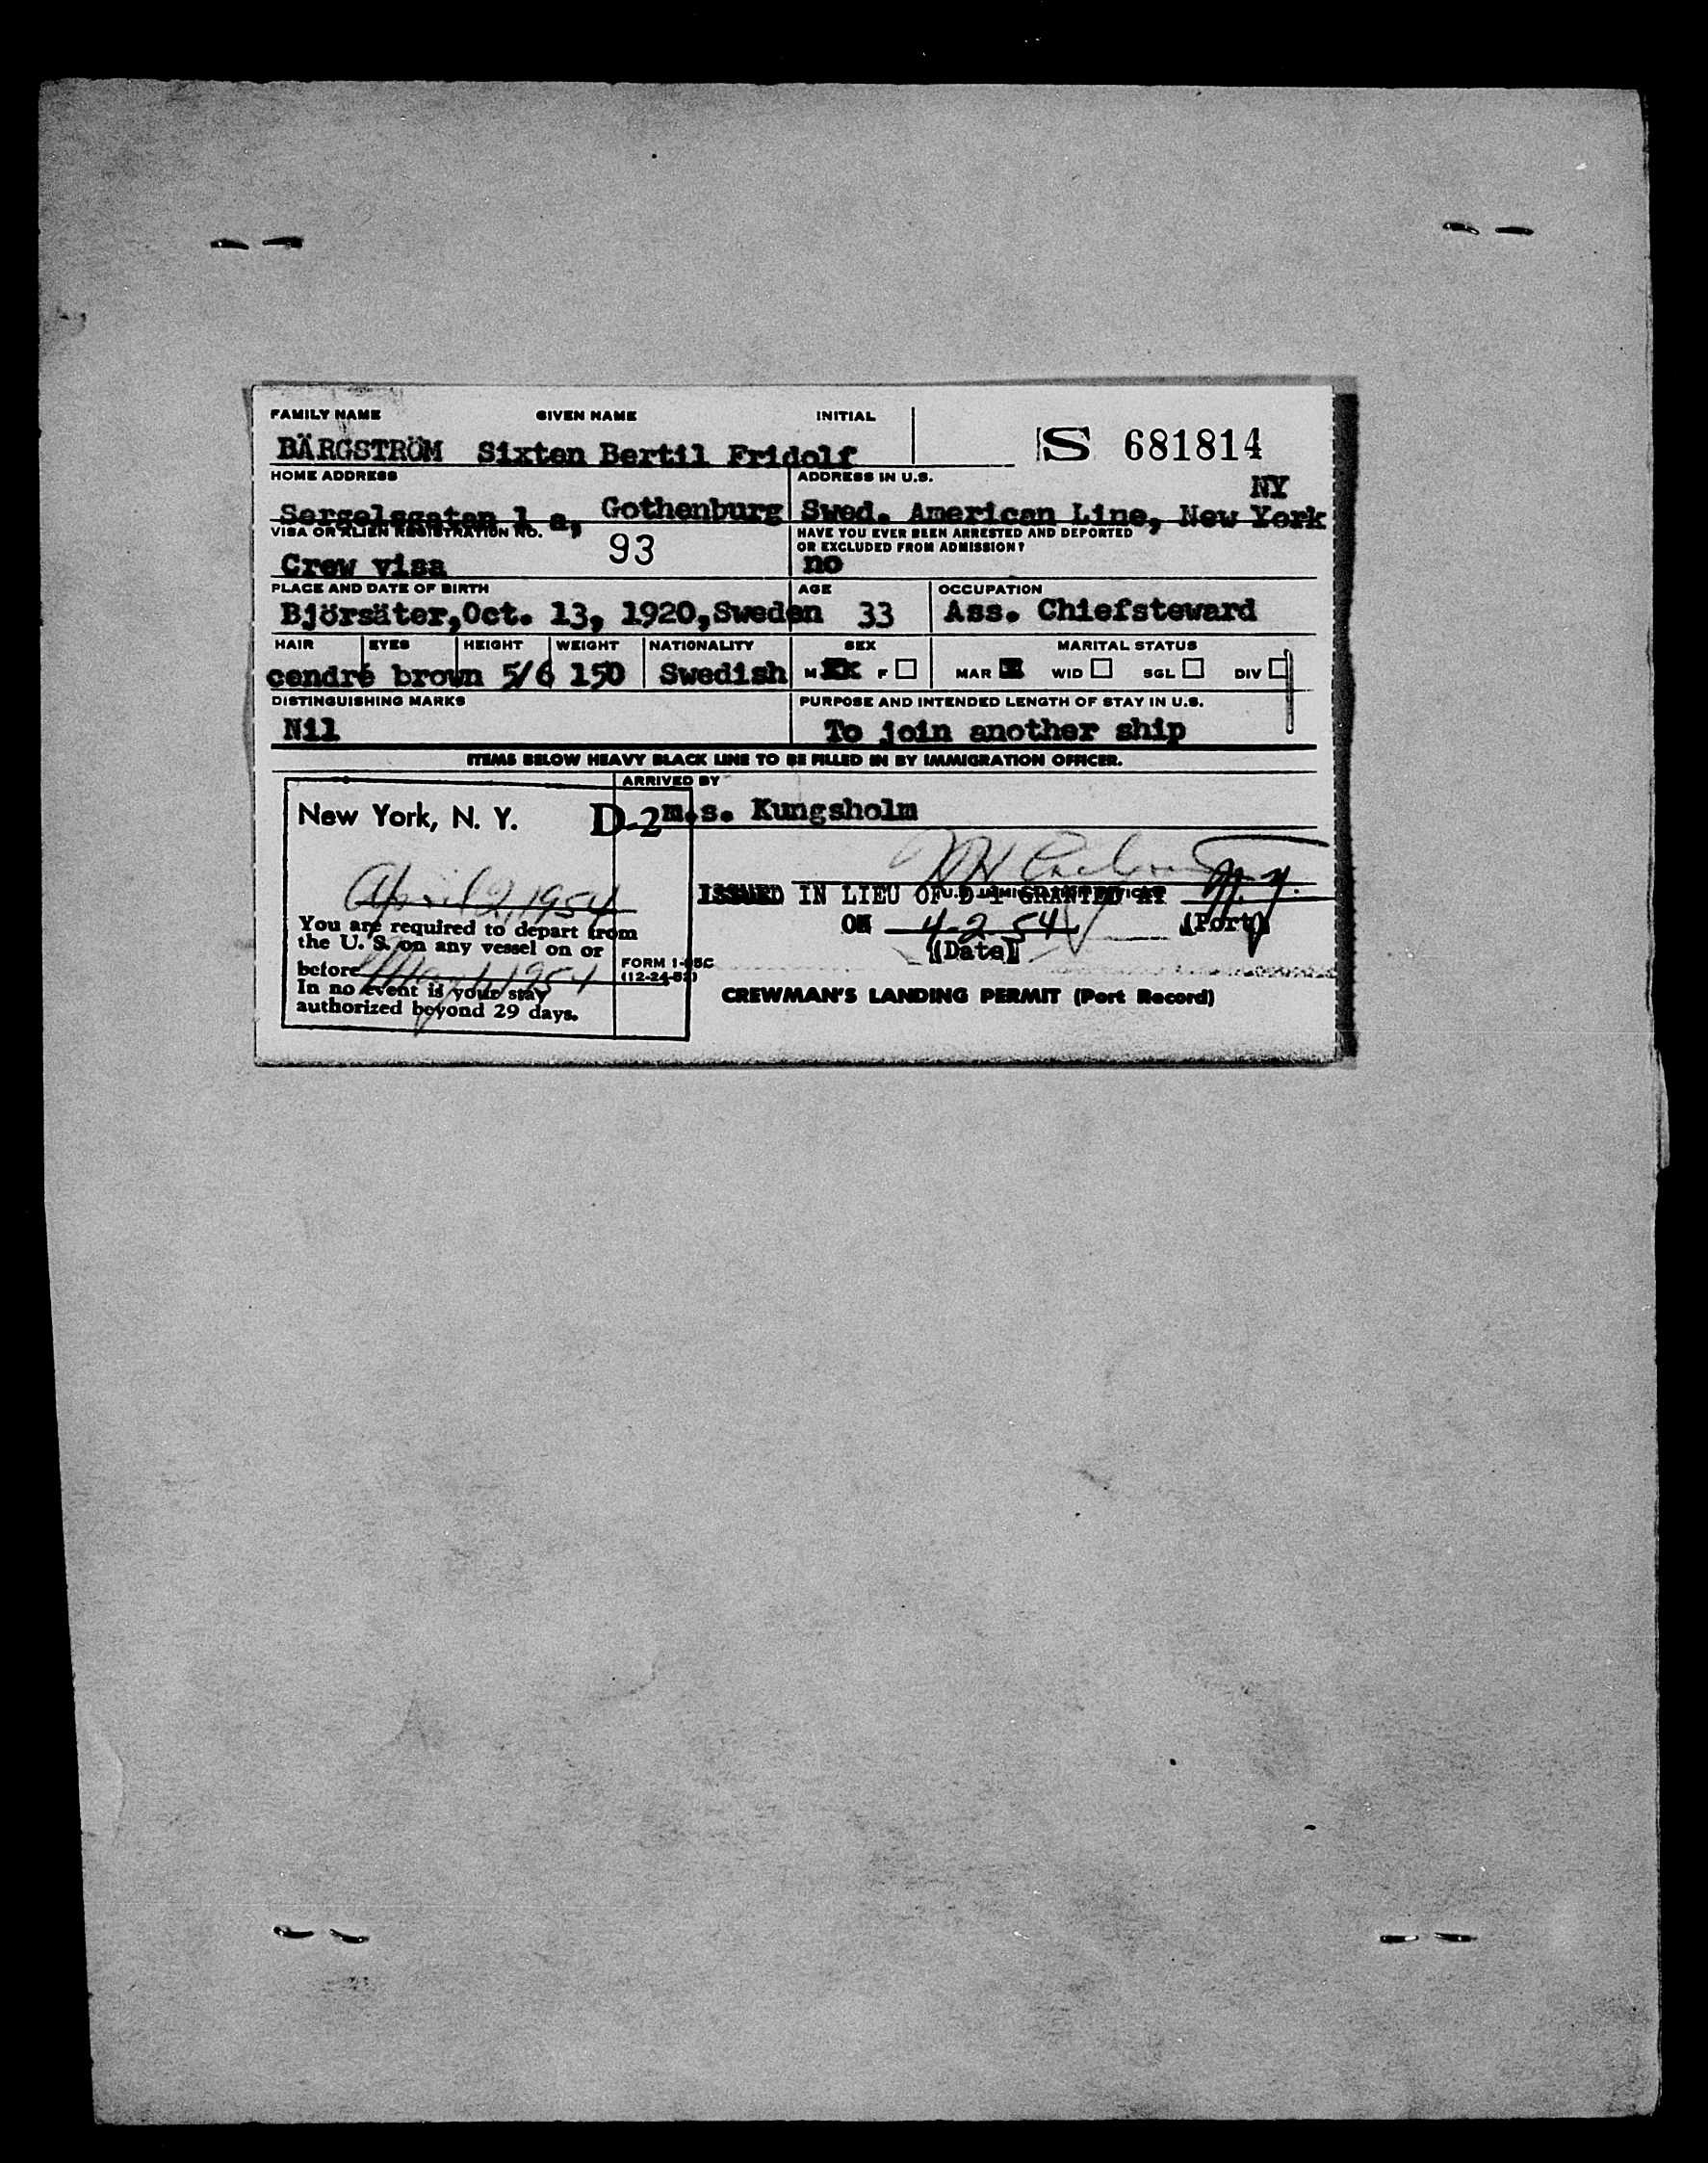 FAMILY NAME GIVEN NAME INITIAL
BÄRGSTRÖM Sixten Bertil Fridolf
S 681814
HOME ADDRESS ADDRESS IN U.S.
NY
Sergelsgatan 1 a, Gothenburg Swed. American Line, New York
VISA OR ALIEN REGISTRATION NO. HAVE YOU EVER BEEN ARRESTED AND DEPORTED
OR EXCLUDED FROM ADMISSION?
Crew visa 93 no
PLACE AND DATE OF BIRTH AGE OCCUPATION
Björsäter,Oct. 13, 1920,Sweden 33 Ass. Chiefsteward
HAIR EYES HEIGHT WEIGHT NATIONALITY SEX MARITAL STATUS
cendré brown 5/6 150 Swedish M F MAR WID SGL DIV
DISTINGUISHING MARKS PURPOSE AND INTENDED LENGTH OF STAY IN U.S.
Nil To join another ship
ITEMS BELOW HEAVY BLACK LINE TO BE FILLED IN BY IMMIGRATION OFFICER.
ARRIVED BY
New York, N. Y. D-2 m.s. Kungsholm
April 2, 1954
ISSUED IN LIEU OF D-1 GRANTED AT N.Y.
(Port)
ON 4-2-54
(Date)
You are required to depart from
the U. S. on any vessel on or
before 1954
In no event is your stay
authorized beyond 29 days.
FORM I-95C
(12-24-52)
CREWMAN'S LANDING PERMIT (Port Record)